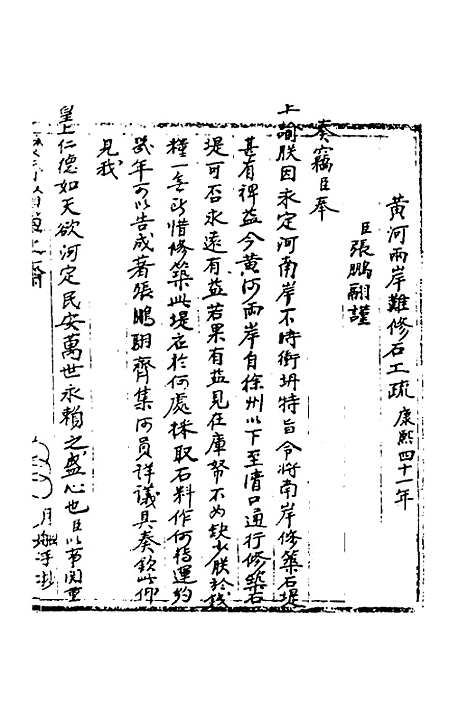 黃河兩岸難修石工疏康熙四十一年
臣張鵬翮謹
奏竊臣奉
上諭朕因永定河南岸不時衝坍特旨令將南岸修築石堤
甚有裨益今黃河兩岸自徐州以下至清口通行修築石
堤可否永遠有益若果有益見在庫帑不如缺少朕於錢
糧一無所惜修築此堤應於何處採取石料作何轉運約
幾年可以告成著張鵬翮齊集河員詳議具奏欽此仰
見我
皇上仁德如天欲河定民安萬世永賴之盛心也臣以事関重